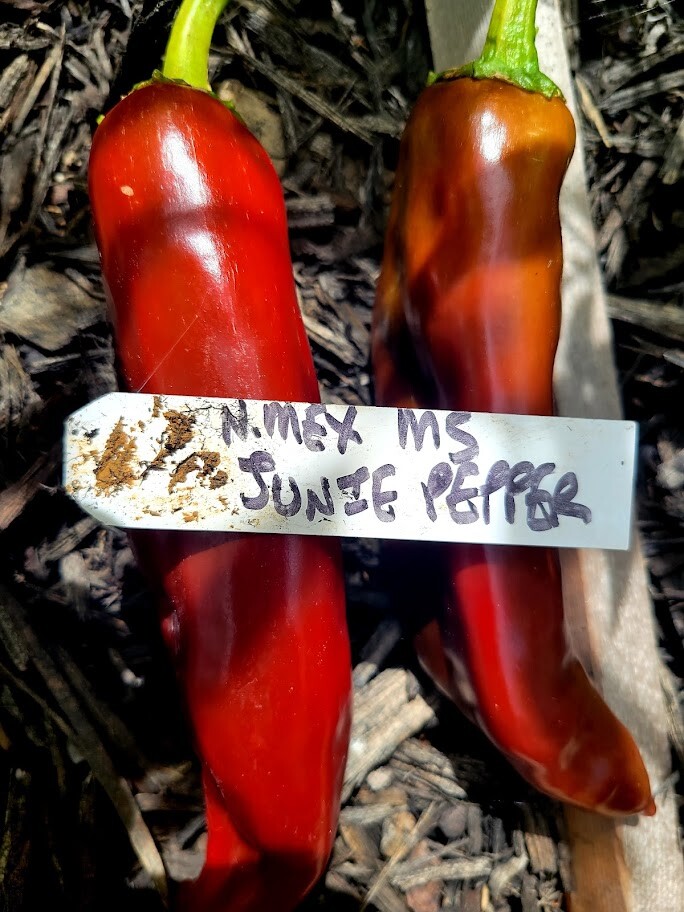 N.MEX MS
JUNIE PEPPER